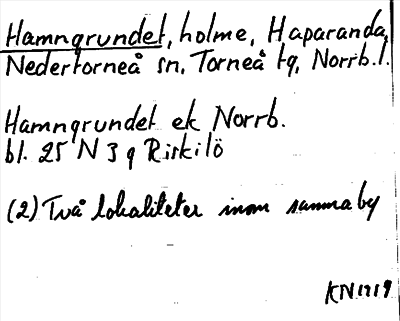 Hamngrundet, holme, Haparanda,
Nedertorneå sn, Torneå tg, Norrb.l.
Hamngrundet ek Norrb.
bl. 25 N 3 q Riskilö
(2) Två lokaliteter inom samma by